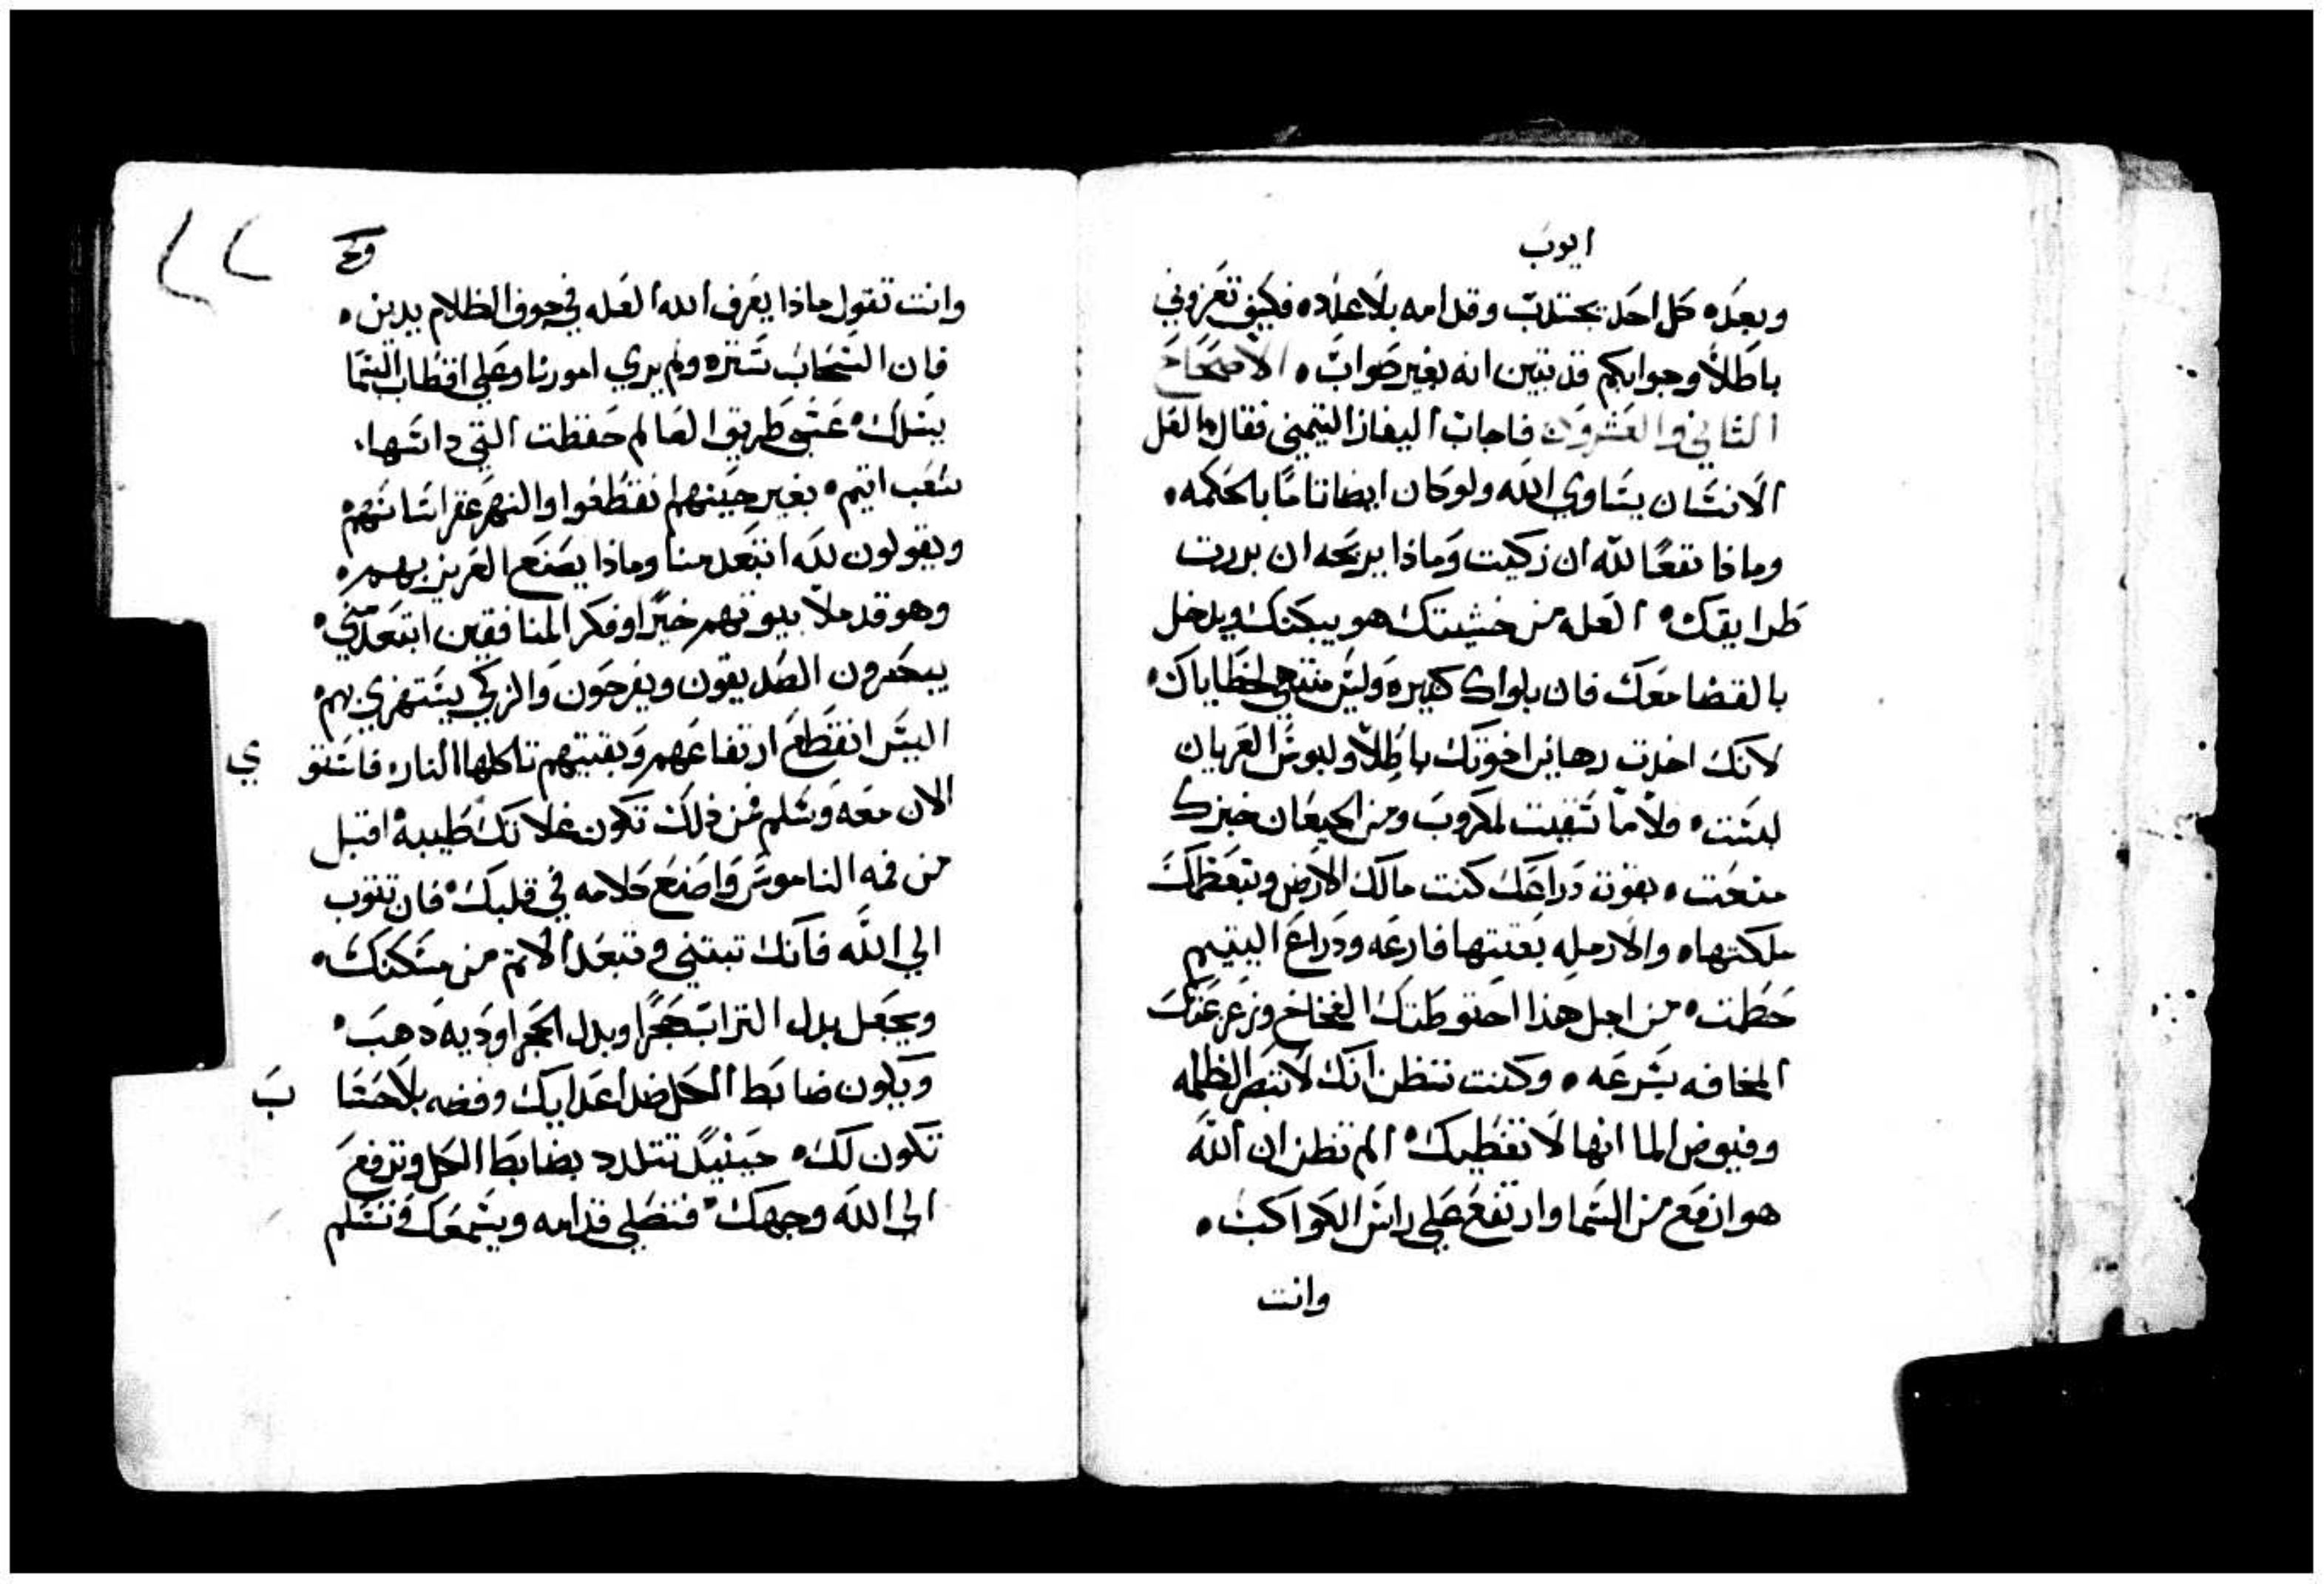 ايوب
وبعده كل احد يجتدب وقدامه بلا عدد فكيف تعزوني
باطلا وجوابكم قد تبين انه بغير صواب الاصحاح
الثاني والعشرون فاجاب اليفاز التيمني فقال العل
الانسان يساوي الله ولو كان ايضا تاما بالحكمه
وماذا نفعا لله ان زكيت وماذا يربحه ان بررت
طرايقك العله من خشيتك هو يبكتك ويدخل
بالقضا معك فان بلواك كبيره وليس منتهي لخطاياك
لانك اخدت رهاين اخوتك باطلا ولبوس العريان
لبست ولا ما سقيت لمكروب ومن الجيعان خبزك
منعت بقوت دراعك كنت مالك الارض وبتعظمك
ملكتها والارمله بعتتها فارغه ودراع اليتيم
حطمت من اجل هذا احتوطتك الفخاخ وزعزعتك
المخافه بسرعه وكنت تتظن انك لا تبصر الظلمه
وفيوض الما انها لا تغطيك الم تظن ان الله
هو ارفع من السما وارتفع علي راس الكواكب
وانت
وانت تقول ماذا يعرف الله العله في جوف الظلام يدين
فان السحاب ستره ولم يري امورنا وعلي اقطاب السما
يسلك عسي طريق العالم حفظت التي داسها
شعب اتيم بغير حينهم انقطعوا والنهر عقر اساسهم
ويقولون لله ابتعد منا وماذا يصنع العزيز بهم
وهو قد ملا بيوتهم خيرا وفكر المنافقين ابتعد مني
يبصرون الصديقون ويفرحون والزكي يستهزي بهم
اليس انقطع ارتفاعهم وبقيتهم تاكلها النار فاستوي
الان معه وسلم فمن ذلك تكون غلاتك طيبه اقبل
من فمه الناموس واضع كلامه في قلبك فان تتوب
الي الله فانك تبتني وتبعد الاتم من مسكنك
ويجعل بدل التراب حجرا وبدل الحجر اوديه دهب
ويكون ضابط الكل ضد اعدايك وفضه بلا حسا ب
تكون لك حينيد تتلدد بضابط الكل وترفع
الي الله وجهك فتصلي قدامه ويسمعك وتسلم